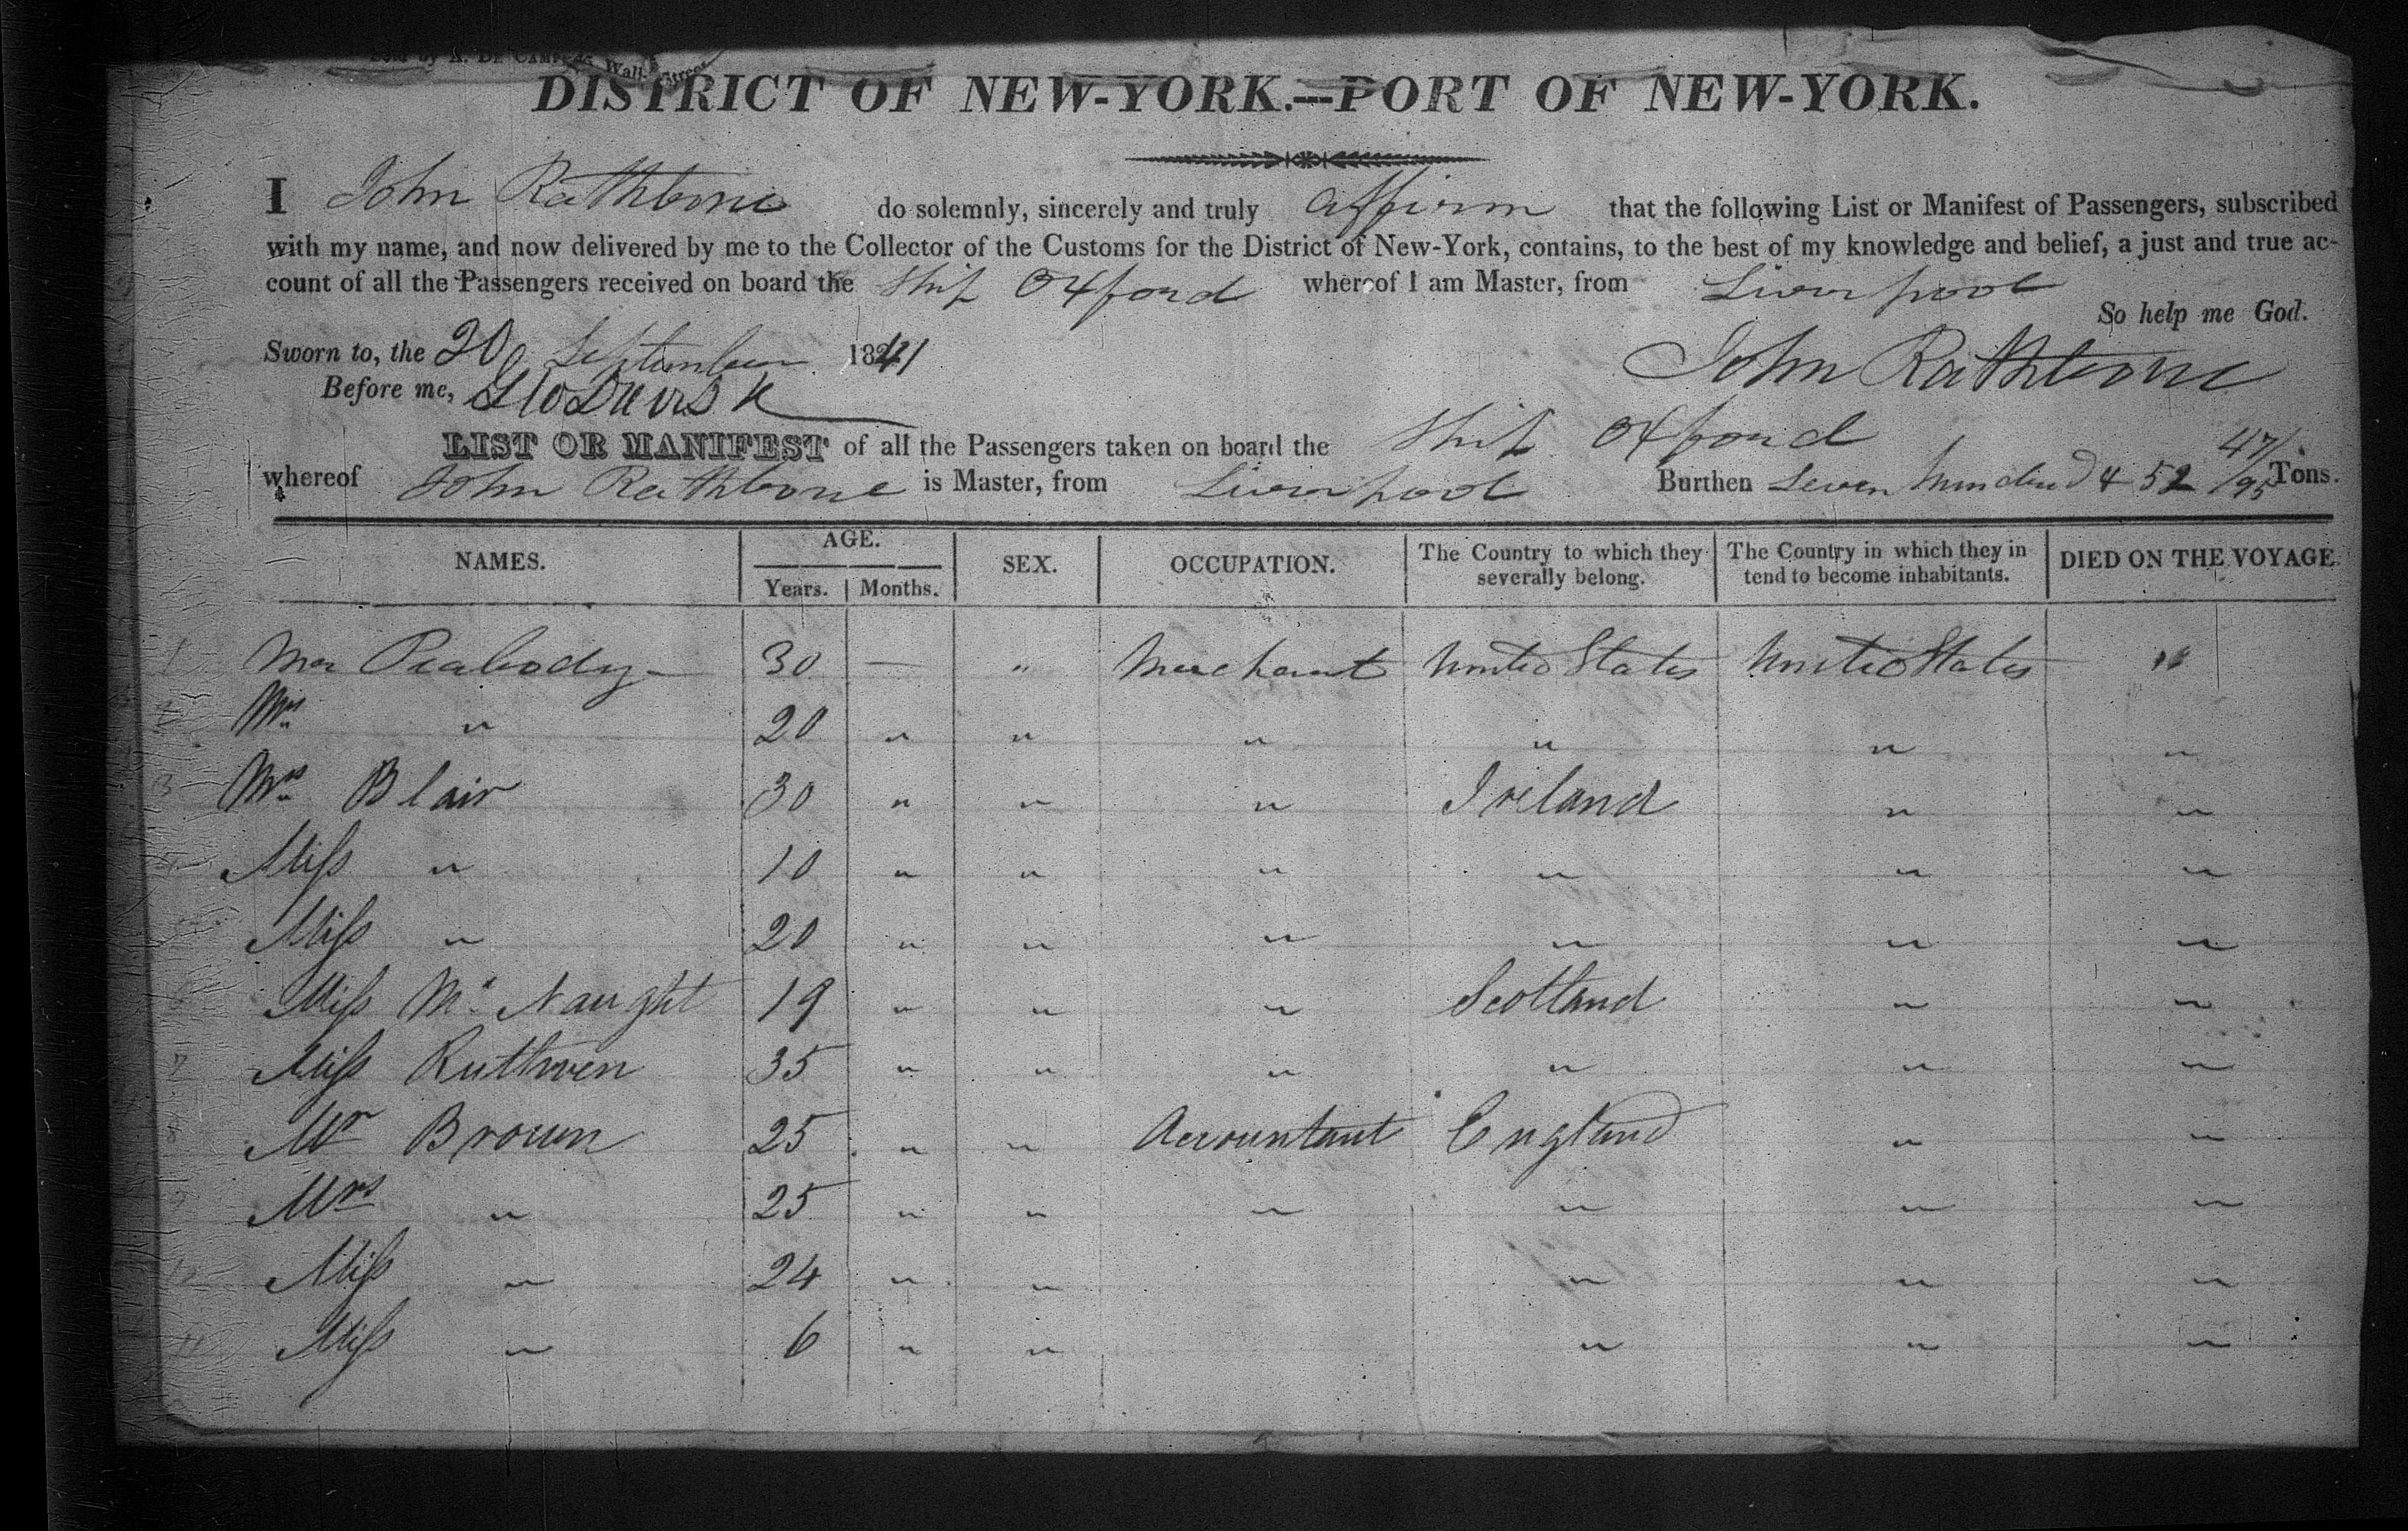 Sold by A. De Camp, 45, Wall-Street
DISTRICT OF NEW-YORK.—PORT OF NEW-YORK.
I John Rathbone do solemnly, sincerely and truly affirm that the following List or Manifest of Passengers, subscribed
with my name, and now delivered by me to the Collector of the Customs for the District of New-York, contains, to the best of my knowledge and belief, a just and true ac-
count of all the Passengers received on board the Ship Oxford whereof I am Master, from Liverpool
So help me God.
Sworn to, the 20 September 1841
John Rathbone
Before me,
LIST OR MANIFEST of all the Passengers taken on board the Ship Oxford
whereof John Rathbone is Master, from Liverpool Burthen Seven hundred & 52 47/95 Tons.
NAMES. AGE. SEX. OCCUPATION. The Country to which they severally belong. The Country in which they in tend to become inhabitants. DIED ON THE VOYAGE.
Years. Months.
1 Mr Peabody 30 — " Merchant United States United States "
2 Mrs " 20 " " " " " "
3 Mrs Blair 30 " " " Ireland " "
Miss " 10 " " " " " "
Miss " 20 " " " " " "
6 Miss Mc Naught 19 " " " Scotland " "
7 Miss Ruthven 35 " " " " " "
8 Mr Brown 25 " " Accountant England " "
9 Mrs " 25 " " " " " "
10 Miss " 24 " " " " "
11 Miss " 6 " " " " "